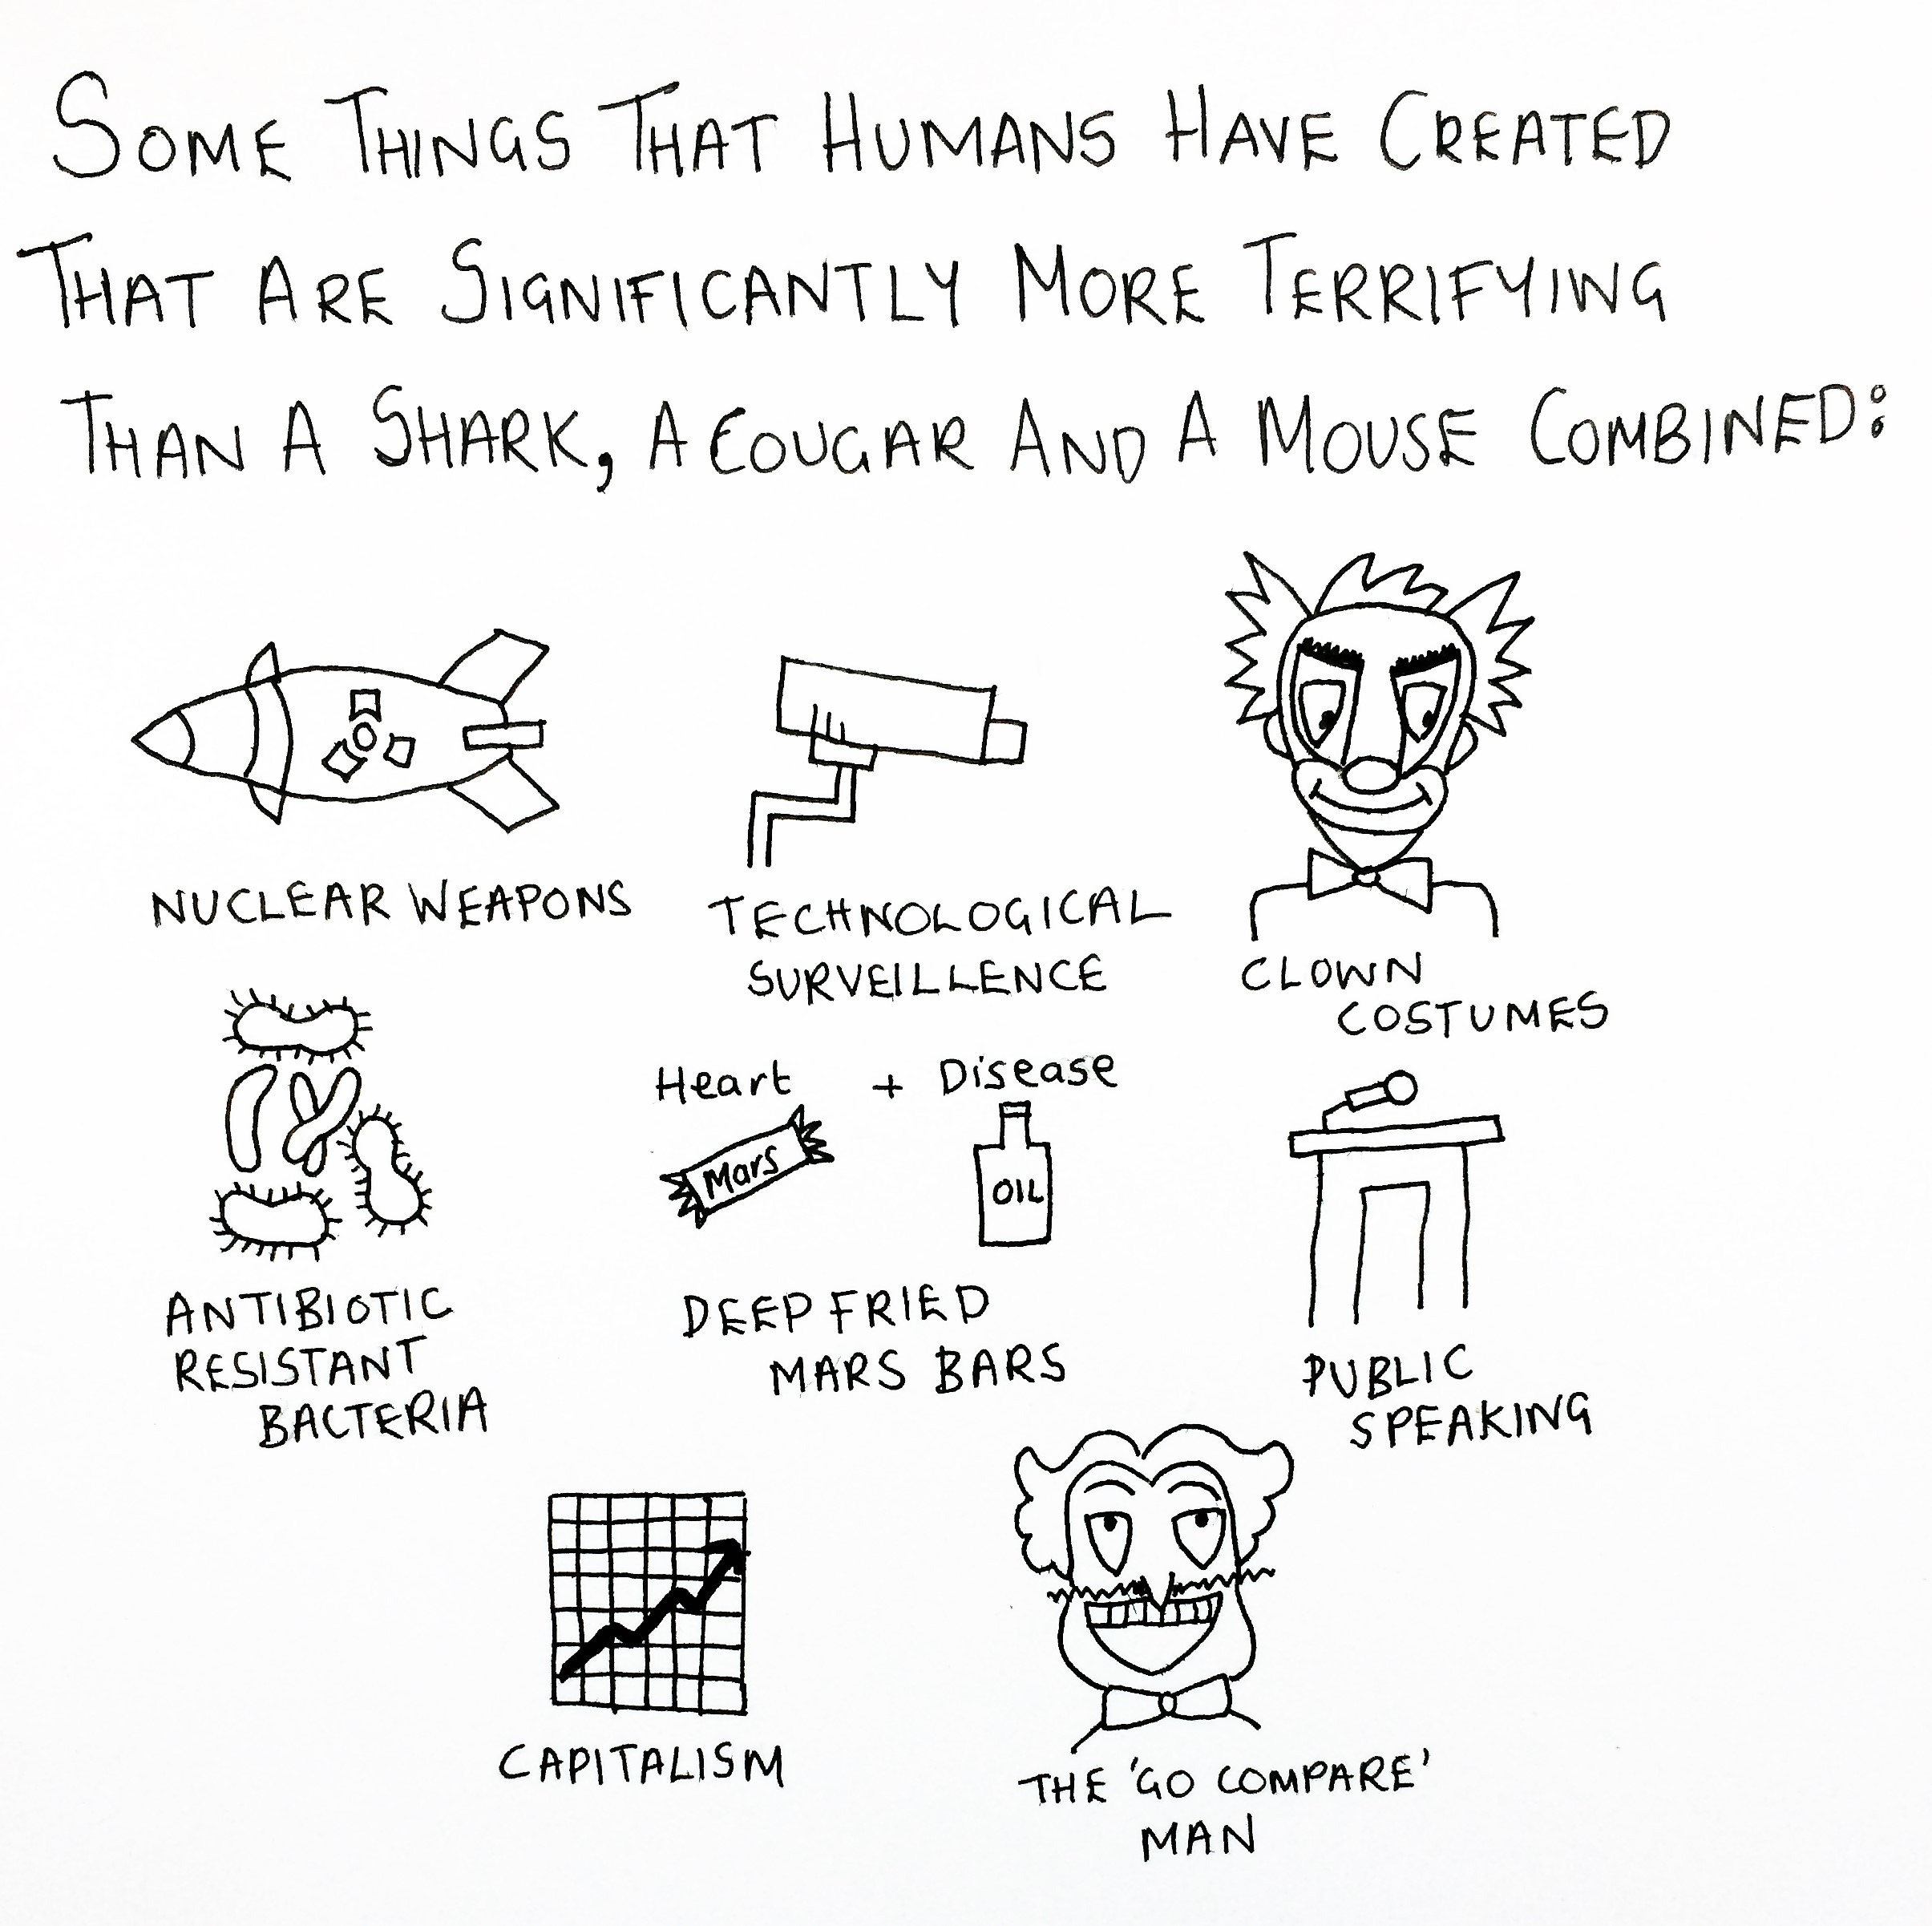 SOME THINGS THAT HUMANS HAVE CREATED
THAT ARE SIGNIFICANTLY MORE TERRIFYING
THAN A SHARK, A COUGAR AND A MOUSE COMBINED:
NUCLEAR WEAPONS
TECHNOLOGICAL
SURVEILLENCE
CLOWN
COSTUMES
Heart + Disease
Mars
OIL
ANTIBIOTIC
RESISTANT
BACTERIA
DEEP FRIED
MARS BARS
PUBLIC
SPEAKING
CAPITALISM
THE 'GO COMPARE'
MAN